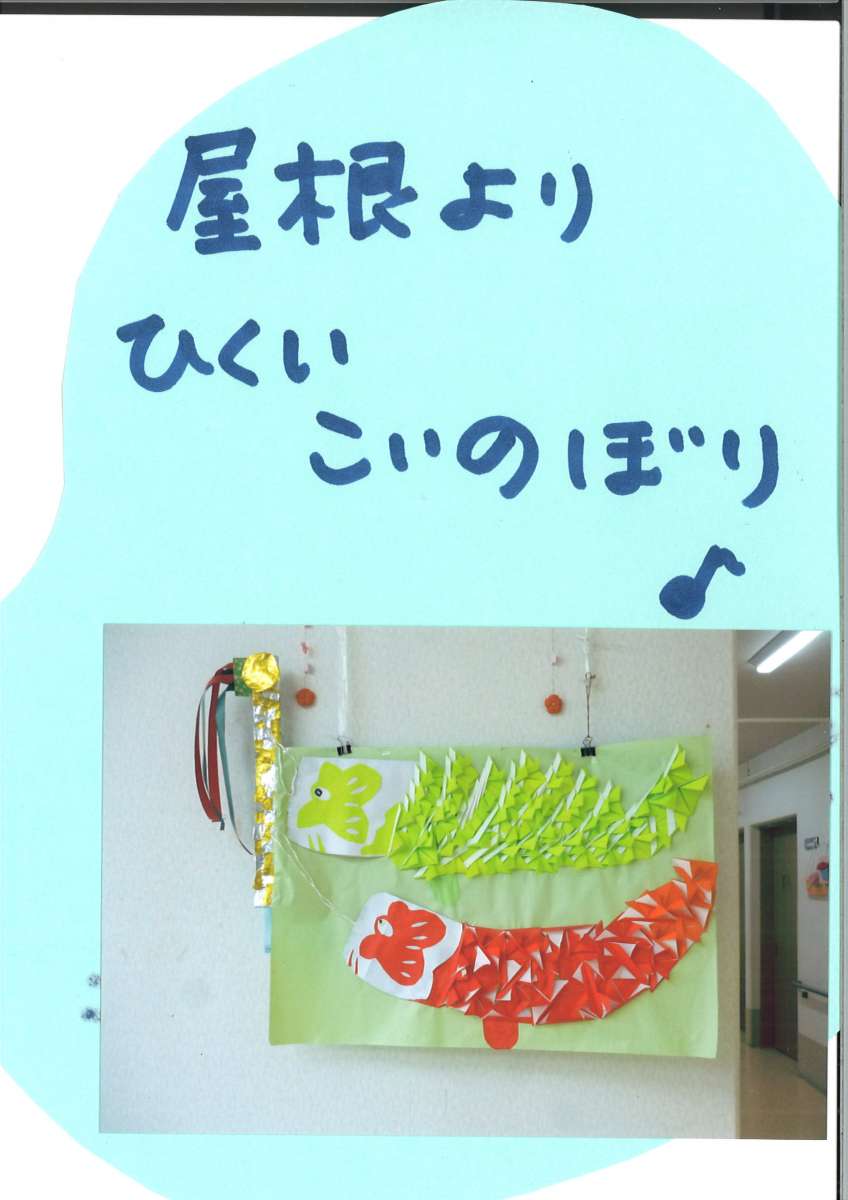 屋根より
ひくい
こいのぼり
♪